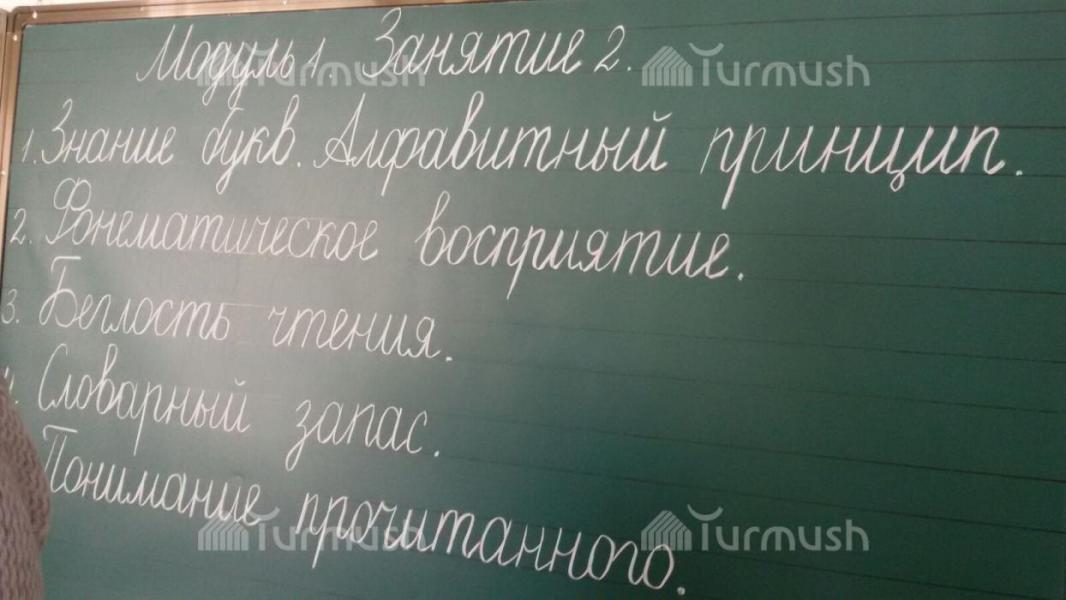 Модуль 1. Занятие 2.
1. Знание букв. Алфавитный принцип.
2. Фонематическое восприятие.
3. Беглость чтения.
4. Словарный запас.
Понимание прочитанного.
Turmush
Turmush
Turmush
Turmush